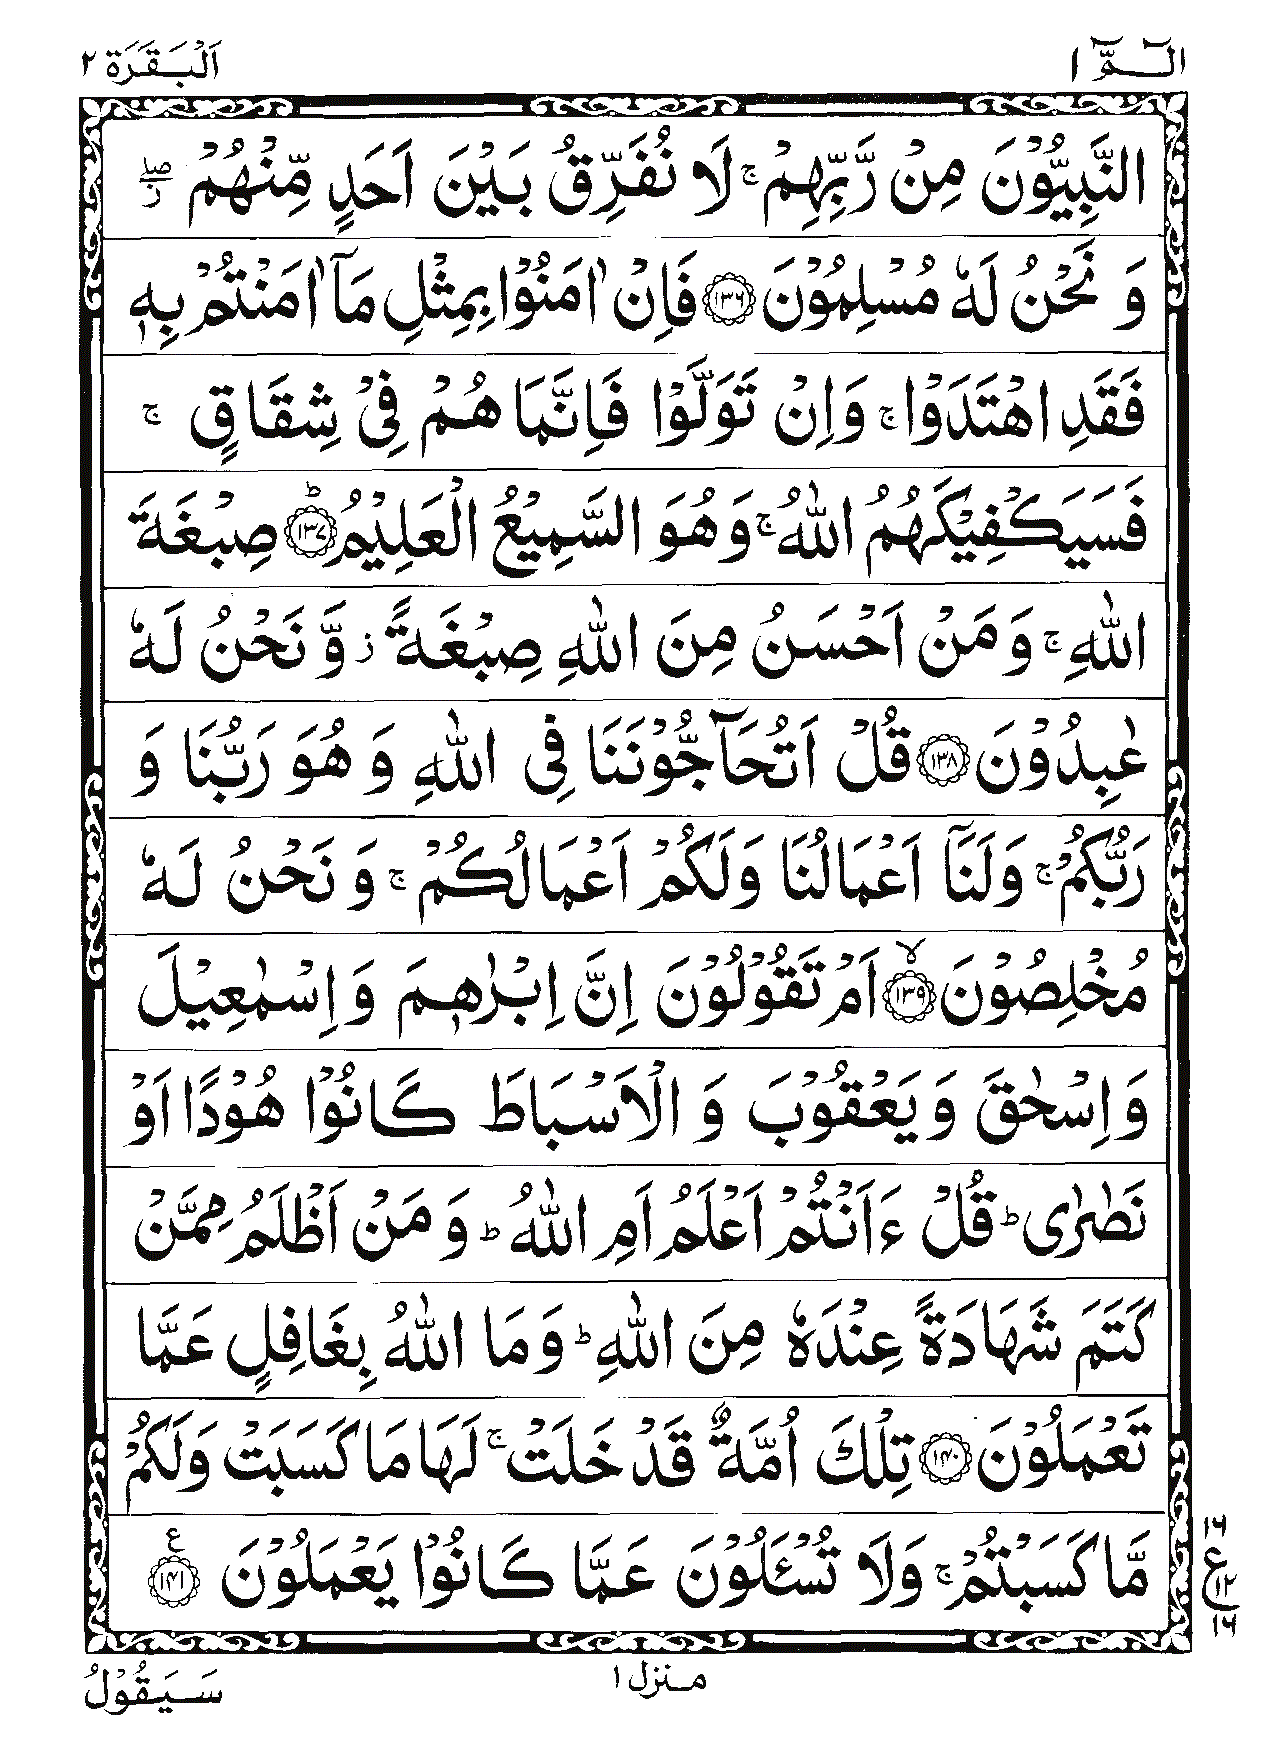 الٓـمّٓ ١
اَلْبَقَرَة ٢
النَّبِيُّوْنَ مِنْ رَّبِّهِمْ ۚ لَا نُفَرِّقُ بَيْنَ اَحَدٍ مِّنْهُمْ ۖ ز
وَ نَحْنُ لَهٗ مُسْلِمُوْنَ ﴿۱۳۶﴾ فَاِنْ اٰمَنُوْا بِمِثْلِ مَاۤ اٰمَنْتُمْ بِهٖ
فَقَدِ اهْتَدَوْا ۚ وَاِنْ تَوَلَّوْا فَاِنَّمَا هُمْ فِيْ شِقَاقٍ ۚ
فَسَيَكْفِيْكَهُمُ اللّٰهُ ۚ وَ هُوَ السَّمِيْعُ الْعَلِيْمُ ﴿۱۳۷﴾ ؕ صِبْغَةَ
اللّٰهِ ۚ وَ مَنْ اَحْسَنُ مِنَ اللّٰهِ صِبْغَةً ز وَّ نَحْنُ لَهٗ
عٰبِدُوْنَ ﴿۱۳۸﴾ قُلْ اَتُحَآجُّوْنَنَا فِي اللّٰهِ وَ هُوَ رَبُّنَا وَ
رَبُّكُمْ ۚ وَلَنَاۤ اَعْمَالُنَا وَلَكُمْ اَعْمَالُكُمْ ۚ وَ نَحْنُ لَهٗ
مُخْلِصُوْنَ ﴿۱۳۹﴾ ۙ اَمْ تَقُوْلُوْنَ اِنَّ اِبْرٰهٖمَ وَ اِسْمٰعِيْلَ
وَ اِسْحٰقَ وَ يَعْقُوْبَ وَ الْاَسْبَاطَ كَانُوْا هُوْدًا اَوْ
نَصٰرٰى ؕ قُلْ ءَاَنْتُمْ اَعْلَمُ اَمِ اللّٰهُ ؕ وَ مَنْ اَظْلَمُ مِمَّنْ
كَتَمَ شَهَادَةً عِنْدَهٗ مِنَ اللّٰهِ ؕ وَ مَا اللّٰهُ بِغَافِلٍ عَمَّا
تَعْمَلُوْنَ ﴿۱۴۰﴾ تِلْكَ اُمَّةٌ قَدْ خَلَتْ ۚ لَهَا مَا كَسَبَتْ وَلَكُمْ
مَّا كَسَبْتُمْ ۚ وَلَا تُسْـَٔلُوْنَ عَمَّا كَانُوْا يَعْمَلُوْنَ ﴿۱۴۱﴾ ع
۱۶
ع ۱۲
۱۶
منزل ١
سَيَقُوْلُ